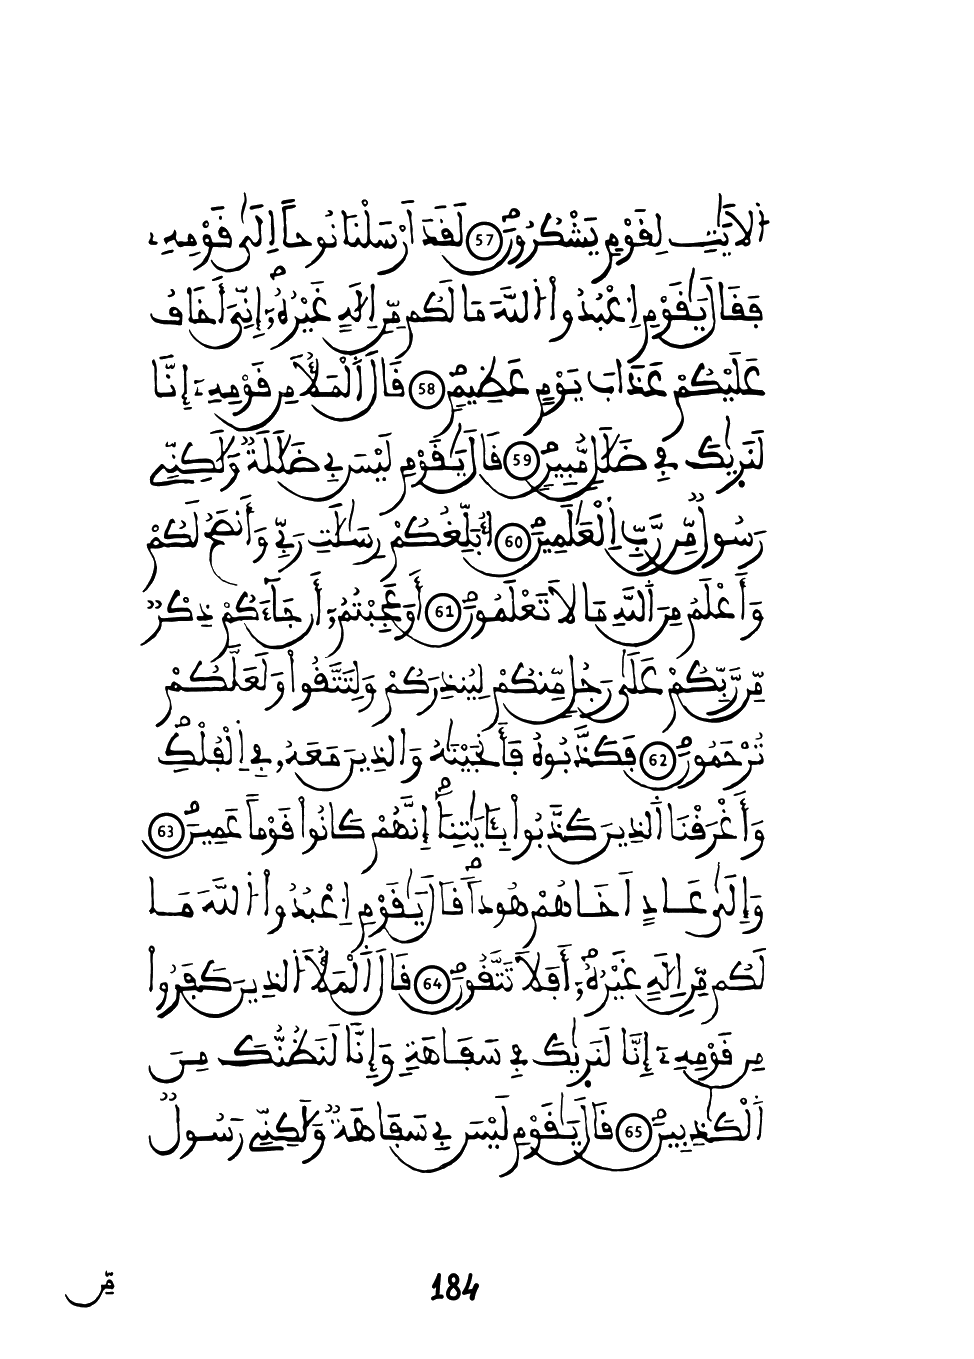 اَ۬لَايَٰتِ لِقَوْمٖ يَشْكُرُونَۖ 57 لَقَدَ اَرْسَلْنَا نُوحاً اِلَيٰ قَوْمِهِۦ
فَقَالَ يَٰقَوْمِ اِ۟عْبُدُواْ اُ۬للَّهَ مَا لَكُم مِّنِ اِلَٰهٍ غَيْرُهُۥٓۖ إِنِّيَ أَخَافُ
عَلَيْكُمْ عَذَابَ يَوْمٍ عَظِيمٖۖ 58 قَالَ اَ۬لْمَلَأُ مِن قَوْمِهِۦٓ إِنَّا
لَنَر۪يٰكَ فِے ضَلَٰلٖ مُّبِينٖۖ 59 قَالَ يَٰقَوْمِ لَيْسَ بِے ضَلَٰلَةٞ وَلَٰكِنِّے
رَسُولٞ مِّن رَّبِّ اِ۬لْعَٰلَمِينَۖ 60 أُبَلِّغُكُمْ رِسَٰلَٰتِ رَبِّے وَأَنصَحُ لَكُمْ
وَأَعْلَمُ مِنَ اَ۬للَّهِ مَا لَا تَعْلَمُونَۖ 61 أَوَعَجِبْتُمُۥٓ أَن جَآءَكُمْ ذِكْرٞ
مِّن رَّبِّكُمْ عَلَيٰ رَجُلٖ مِّنكُمْ لِيُنذِرَكُمْ وَلِتَتَّقُواْ وَلَعَلَّكُمْ
تُرْحَمُونَۖ 62 فَكَذَّبُوهُ فَأَنجَيْنَٰهُ وَالذِينَ مَعَهُۥ فِے اِ۬لْفُلْكِۖ
وَأَغْرَقْنَا اَ۬لذِينَ كَذَّبُواْ بِـَٔايَٰتِنَآۖ إِنَّهُمْ كَانُواْ قَوْماً عَمِينَۖ 63
وَإِلَيٰ عَادٍ اَخَاهُمْ هُوداٗۖ قَالَ يَٰقَوْمِ اِ۟عْبُدُواْ اُ۬للَّهَ مَا
لَكُم مِّنِ اِلَٰهٍ غَيْرُهُۥٓۖ أَفَلَا تَتَّقُونَۖ 64 قَالَ اَ۬لْمَلَأُ اُ۬لذِينَ كَفَرُواْ
مِن قَوْمِهِۦٓ إِنَّا لَنَر۪يٰكَ فِے سَفَاهَةٖ وَإِنَّا لَنَظُنُّكَ مِنَ
اَ۬لْكَٰذِبِينَۖ 65 قَالَ يَٰقَوْمِ لَيْسَ بِے سَفَاهَةٞ وَلَٰكِنِّے رَسُولٞ
184
مِّن